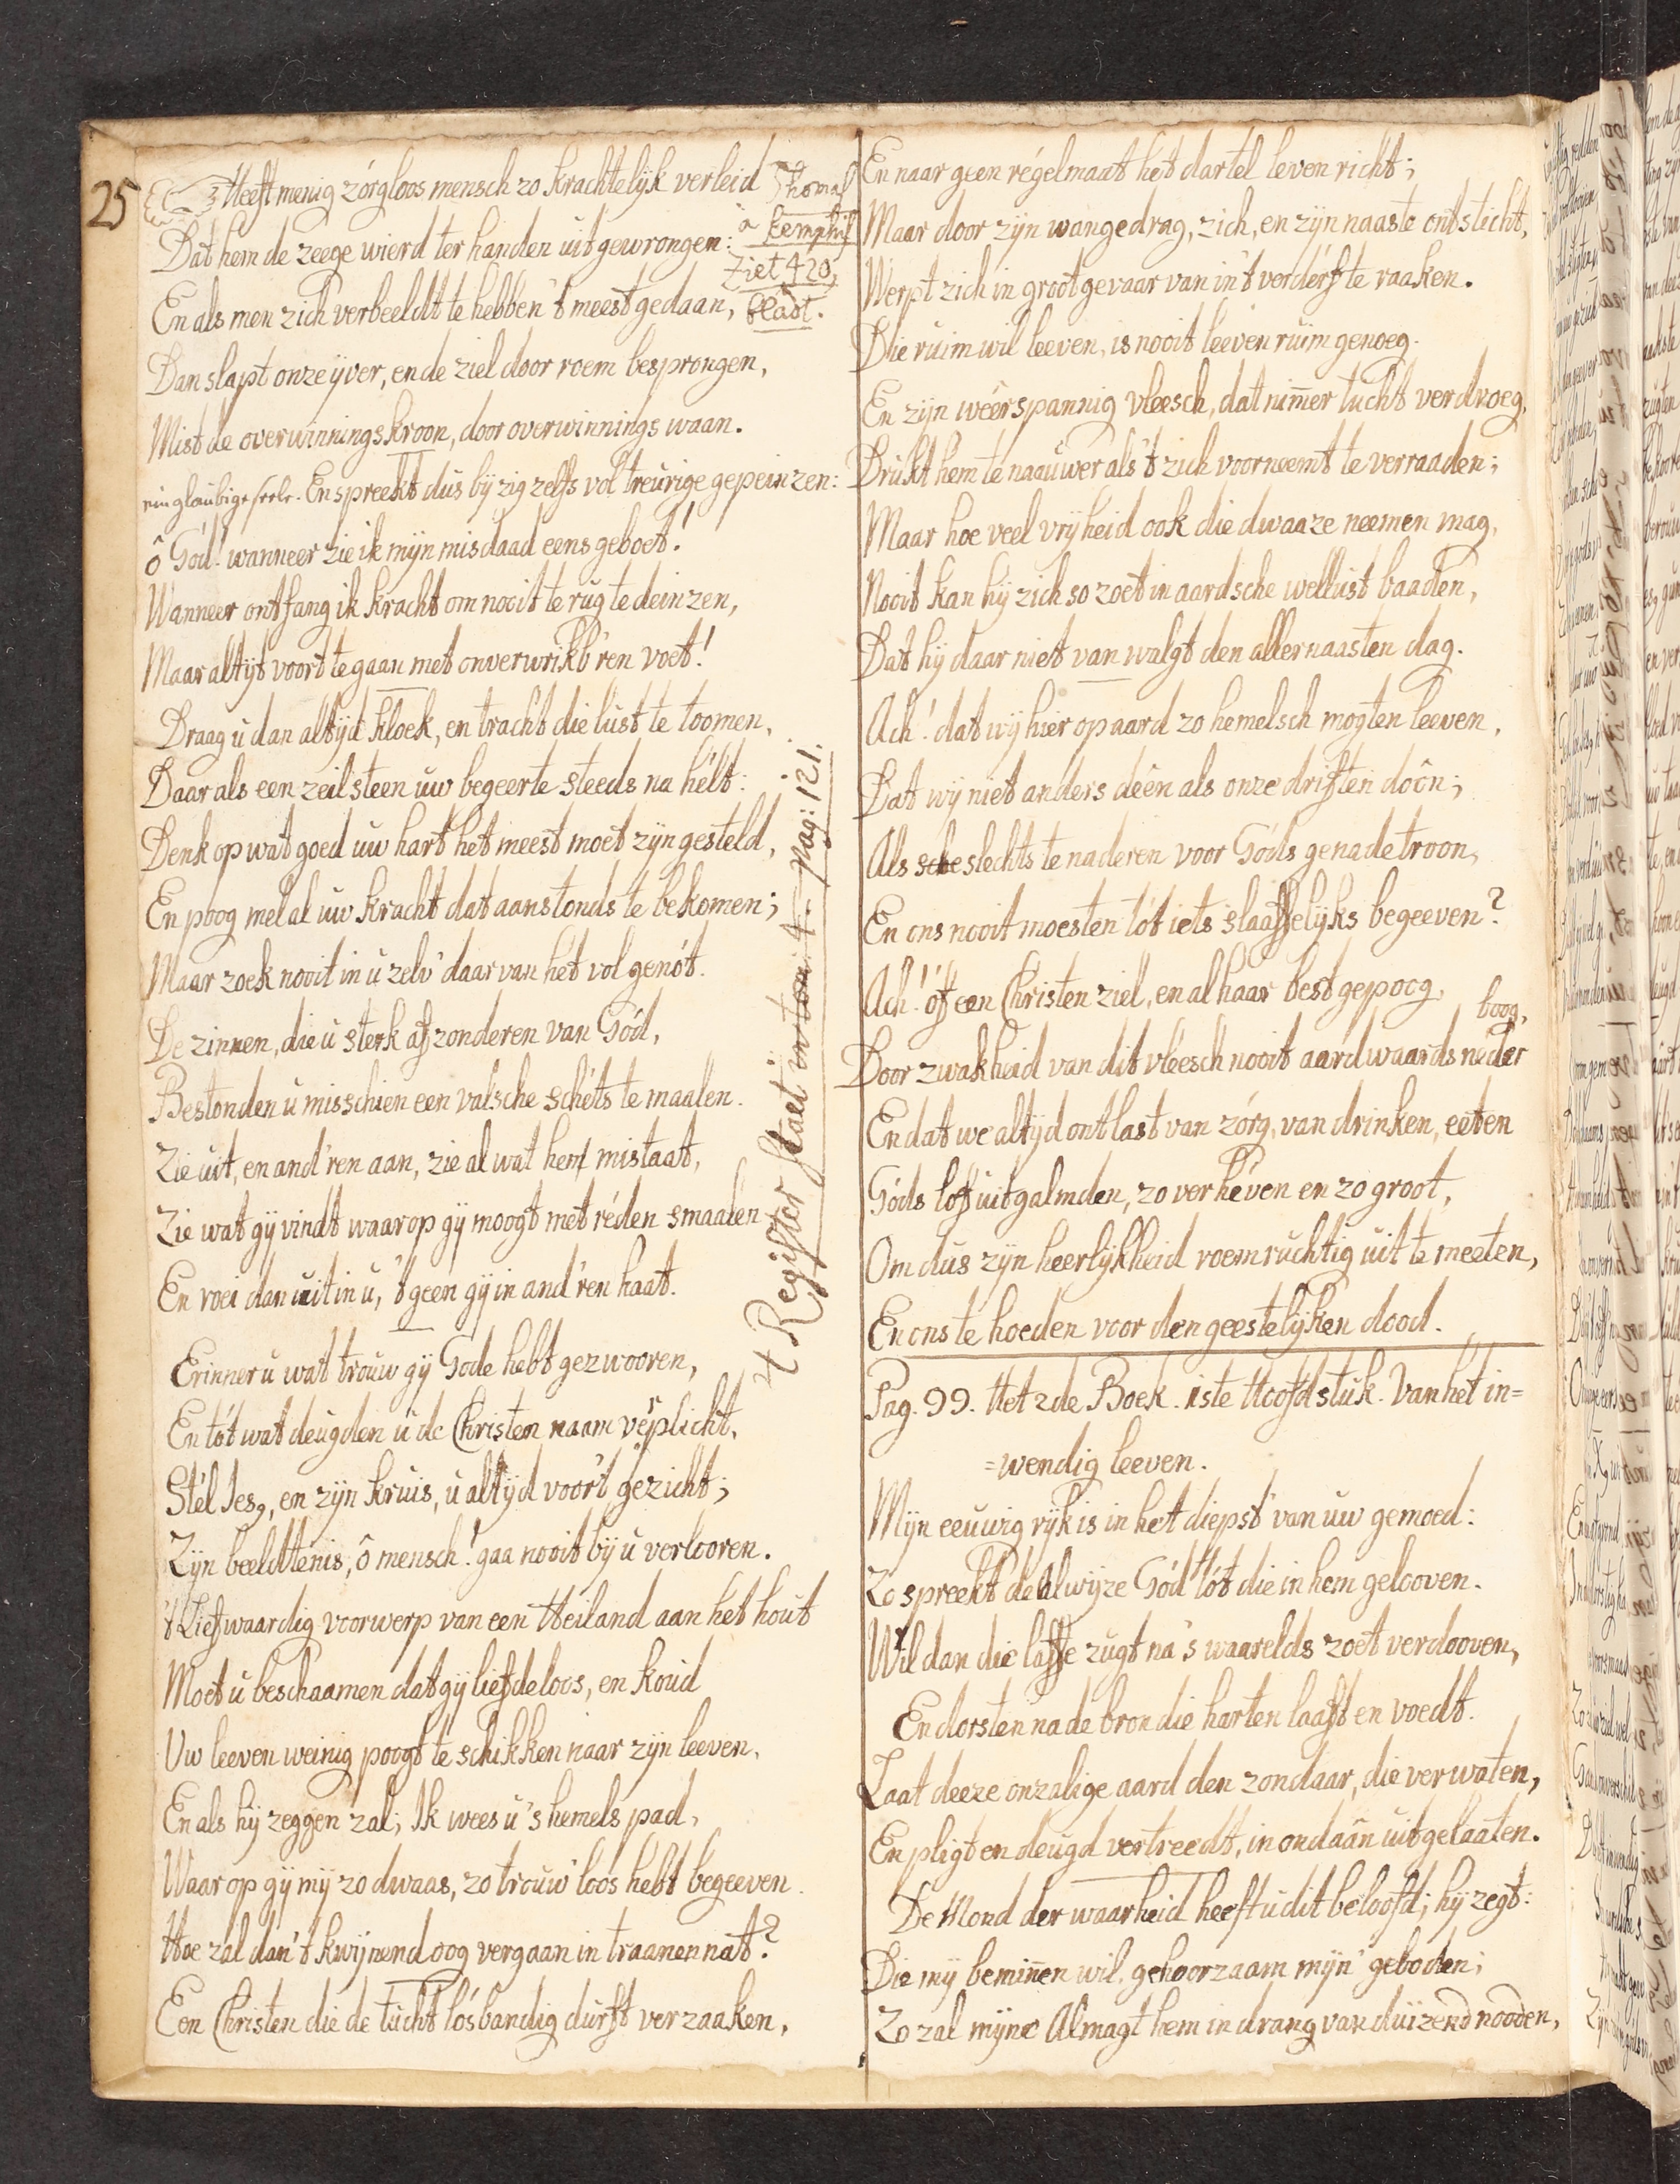 25
Heeft menig zórgloos mensch zo krachtelijk verleid
Thomas
à Kemphis
Ziet 420,
bladt.
Dat hem de zeege wierd ter handen uit gewrongen:
En als men zich verbeeldt te hebben 't meest gedaan,
Dan slapt onze ijver, en de ziel door roem besprongen,
Mist de overwinnings kroon, door overwinnings waan.
ein glaubige seele. En spreekt dus bij zig zelfs vol treurige gepeinzen:
ô Gód! wanneer zie ik mijn misdaad eens geboet!
Wanneer ontfang ik kracht om nooit te rug te deinzen,
Maar altijt voort te gaan met onverwrikb'ren voet!
Draag u dan altijd kloek, en tracht die lust te toomen,
Daar als een zeilsteen uw begeerte steeds na hélt:
Denk op wat goed uw hart het meest moet zijn gesteld,
En poog met al uw kracht dat aanstonds te bekomen;
Maar zoek nooit in u zelv' daar van hét vol genót.
De zinnen, die u sterk afzonderen van Gód,
Bestonden u misschien een valsche schéts te maalen.
Zie uit, en and'ren aan, zie al wat hem mistaat,
Zie wat gij vindt waar op gij moogt met réden smaalen
En roei dan uit in u, 't geen gij in and'ren haat.
Erinner u wat trouw gij Gode hebt gezwooren,
En tót wat deugden u de Christen naam verplicht,
Stél Jes9, en zijn kruis, u altijd voor't gezicht;
Zijn beeldttenis, ô mensch! gaa nooit bij u verlooren.
't Liefwaardig voorwerp van een Heiland aan hét hout
Moet u beschaamen dat gij liefdeloos, en koud
Uw leeven weinig poogt te schikken naar zijn leeven,
En als hij zeggen zal; Ik wees u 's hemels pad,
Waar op gij mij zo dwaas, zo trouw'loos hebt begeeven.
Hoe zal dan 't kwijnend oog vergaan in traanen nat?
Een Christen die de tucht lósbandig durft verzaaken,
't Register staet in tom: 4. pag: 121.
En naar geen régelmaat hét dartel leven richt;
Maar door zijn wangedrag, zich, en zijn naaste ontsticht,
Werpt zich in groot gevaar van in't verdérf te raaken.
Die ruim wil leeven, is nooit leeven ruim genoeg.
En zijn weêrspannig vleesch, dat nim̅er tucht verdroeg,
Drukt hem te naauwer als 't zich voorneemt te verraaden;
Maar hoe veel vrijheid ook die dwaaze neemen mag,
Nooit kan hij zich so zoet in aardsche wellust baaden,
Dat hij daar niet van walgt den allernaasten dag.
Ach! dat wij hier op aard zo hemelsch mogten leeven,
Dat wij niet anders déên als onze driften doôn;
Als slechts te naderen voor Góds genade troon,
En ons nooit moesten tót iets slaaffelijks begeeven?
Ach! óf een Christen ziel, en al haar best gepoog,
Door zwakheid van dit vleesch nooit aardwaards neder boog,
En dat we altijd ontlast van zórg, van drinken, eeten
Góds lof uitgalmden, zo verhéven en zo groot,
Om dus zijn heerlijkheid roemruchtig uit te meeten,
En ons te hoeden voor den geestelijken dood.
Pag. 99. Het 2de Boek. 1ste Hoofdstuk. Van hét in=
=wendig leeven.
Mijn eeuwig rijk is in het diepst' van uw gemoed:
Zo spreekt de Alwijze Gód tót die in hem gelooven.
Wil dan die laffe zugt na 's waarelds zoet verdooven,
En dorsten na de bron die harten laaft en voedt.
Laat deeze onzalige aard den zondaar, die verwaten,
En pligt en deugd vertreedt, in ondaân uitgelaaten.
De Mond der waarheid heeft u dit beloofd; hij zegt:
Die mij bemin̅en wil, gehoorzaam mijn' geboden;
Zo zal mijne Almagt hem in drang van duizend nooden,